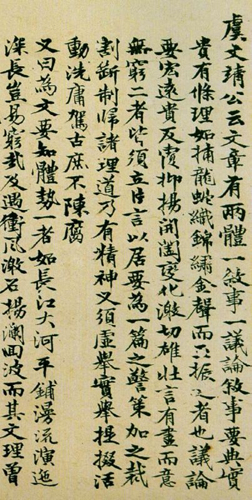 虞文靖公云文章有兩體一敘事一議論敘事要典實
貴有條理如捕龍蛇織錦繡金聲而玉振之者也議論
要宏遠貴反覆抑揚開闔變化激切雄壯言有盡而意
無窮二者皆須立片言以居要為一篇之警策加之裁
割斷制歸諸理道乃有精神又須虛舉實舉捏撮活
動洗庸駕古庶不陳腐
又曰為文要知體勢一者如長江大河平鋪漫流演迤
深長豈易窮哉及遇衝風激石揚瀾回波而其文理曾